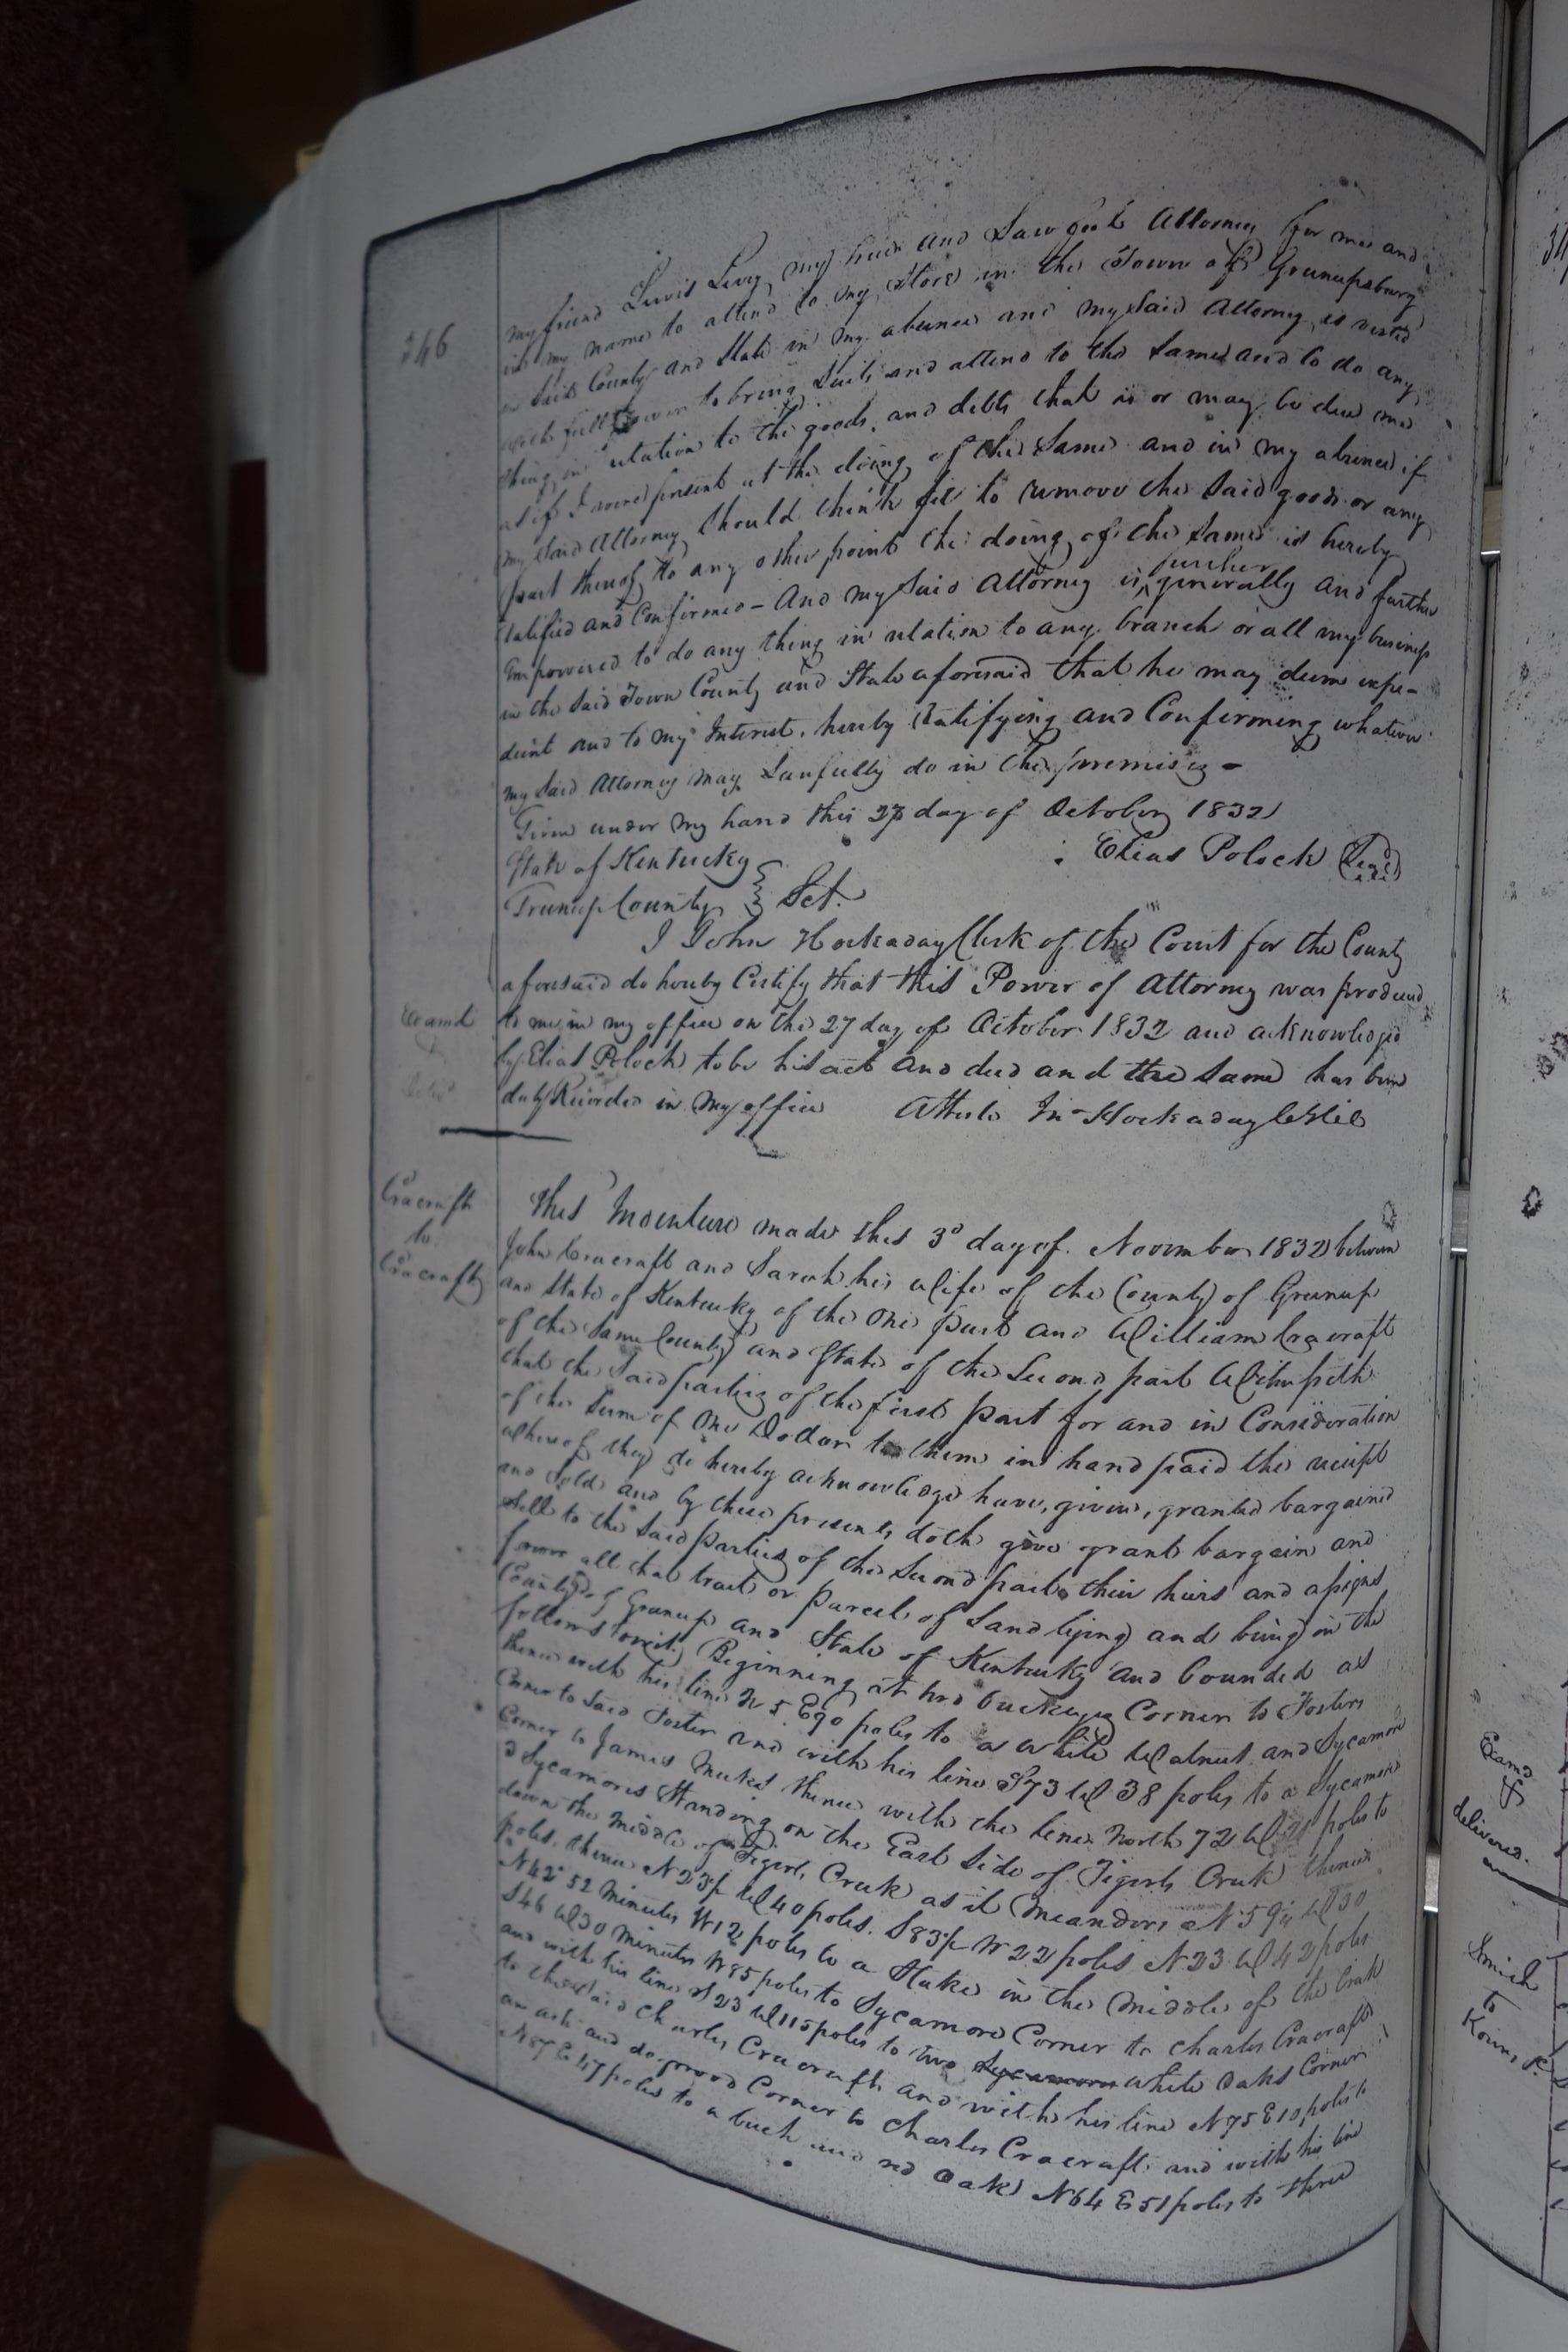 346
my friend Lewis Levy my true and Lawful Attorney for me and
in my name to attend to my Store in the Town of Greenupsburg
in Said County and State in my absence and my Said Attorney is vested
with full Power to bring Suits and attend to the Same and to do any
thing in relation to the goods, and debts that is or may be due me
as if I were present at the doing of the Same and in my absence if
my Said Attorney Should think fit to remove the Said goods or any
part thereof to any other point the doing of the Same is hereby
ratified and Confirmed - And my Said Attorney is further generally and further
Empowered to do any thing in relation to any branch or all my business
in the Said Town County and State aforesaid that he may deem expe-
dient and to my Interest, hereby Ratifying and Confirming whatever
my Said Attorney may Lawfully do in the premises -
Given under my hand this 27 day of October 1832
Elias Polock (Seal)
State of Kentucky
Greenup County } Sct.
I John Hockaday Clerk of the Court for the County
aforesaid do hereby Certify that this Power of Attorney was produced
Examd to me in my office on the 27 day of October 1832 and acknowledged
by Elias Polock to be his act and deed and the Same has been
duly Recorded in my office Attest Jn Hockaday
Cracraft
to
Cracraft
This Indenture made this 3d day of November 1832 between
John Cracraft and Sarah his Wife of the County of Greenup
and State of Kentucky of the One part and William Cracraft
of the Same County and State of the Second part Witnesseth
that the Said parties of the first part for and in Consideration
of the Sum of One Dollar to them in hand paid the receipt
whereof they do hereby acknowledge have, given, granted bargained
and Sold and by these presents doth give grant bargain and
Sell to the Said parties of the Second part their heirs and assigns
forever all that tract or parcel of Land lying and being in the
County of Greenup and State of Kentucky and bounded as
follows towit, Beginning at two buckeyes Corner to Fosters
thence with his line N 5 E 90 poles to a White Walnut and Sycamore
Corner to Said Foster and with his line S 73 W 38 poles to a Sycamore
Corner to James thence with the line North 72 W poles to
Sycamores Standing on the East Side of Tigerts Creek thence
down the Middle of Tigerts Creek as it Meanders N 59 W 30
poles. thence N 23 W 40 poles. S 83 W 22 poles N 23 W 42 poles
N 42° 52 Minutes W 12 poles to a Stake in the Middle of the Creek
S 46 W 30 Minutes W 85 poles to Sycamore Corner to Charles Cracraft
and with his line S 23 W 115 poles to two Sycamores White Oaks Corner
to the Said Charles Cracraft and with his line N 75 E 10 poles to
an ash and dogwood Corner to Charles Cracraft and with his line
N 87 E 47 poles to a beech and red Oak N 64 E 51 poles to three
Examd
&
delivered
Smith
to